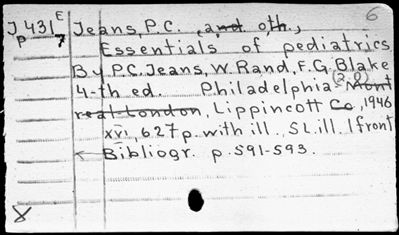 6
J 431 E Jeans, P.C. and oth.,
p 7 Essentials of pediatrics
By P.C. Jeans, W. Rand, F.G. Blake
4-th ed. Philadelphia (2,8) Mont
real London, Lippincott Co, 1946
xvi, 627 p. with ill., 5 L. ill. 1 front
Bibliogr. p. 591-593.